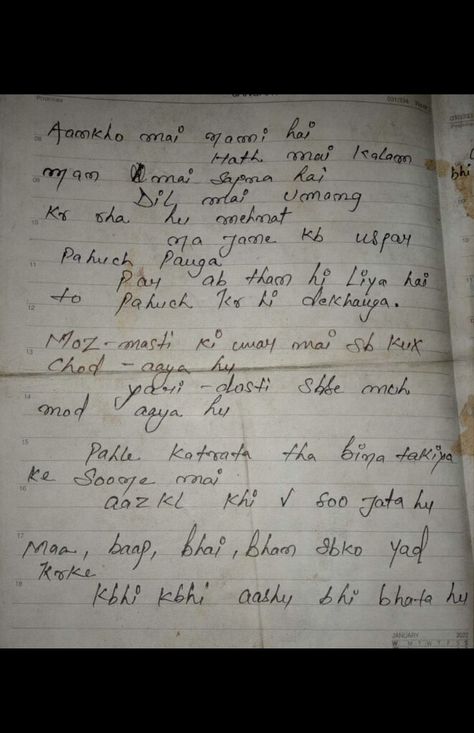 JANUARY
031/334
08
Aamkho mai nami hai
Hath mai Kalam
09
man mai sapna hai
bhi
Dil mai umang
10
Kr rha hu mehnat
na jane kb uspar
11
Pahuch Pauga
Par ab tham hi Liya hai
12
to Pahuch Kr hi dekhauga.
13
Moz-masti ki umar mai sb kux
chod-agya hu
14
yari-dosti sbse moh
mod agya hu
15
Pahle Katrata tha bina takiya
ke soone mai
16
aaz kl khi √ soo jata hu
17
Maa, baap, bhai, bhan sbko yad
Krke
18
Kbhi kbhi aashu bhi bhata hu
JANUARY 2022
W M T W T F S S